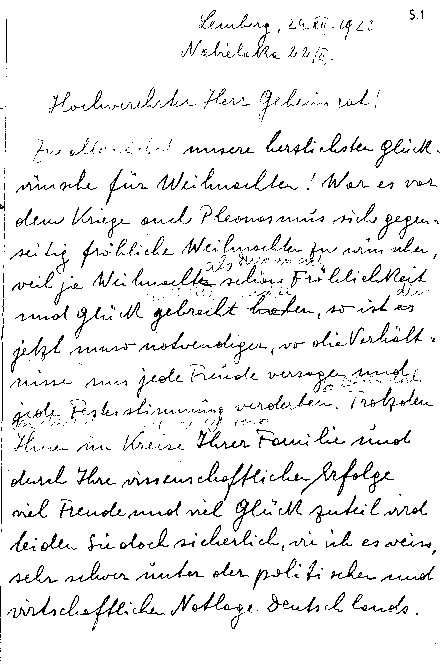 S. 1
Lemberg, 24.XII.1923
Nabielaka 22/II.
Hochverehrter Herr Geheimrat!
Zu allererst unsere herzlichsten Glück-
wünsche für Weihnachten! War es vor
dem Kriege auch Pleonasmus sich gegen-
seitig fröhliche Weihnachten zu wünschen,
weil ja Weihnachten schon Fröhlichkeit
und Glück gebracht haben, so ist es
jetzt umso notwendiger, wo die Verhält-
nisse uns jede Freude versagen und
jede Festesstimmung verderben. Trotzdem
Ihnen im Kreise Ihrer Familie und
durch Ihre wissenschaftlichen Erfolge
viel Freude und viel Glück zuteil wird
leiden Sie doch sicherlich, wie ich es weiss,
sehr schwer unter der politischen und
wirtschaftlichen Notlage Deutschlands.